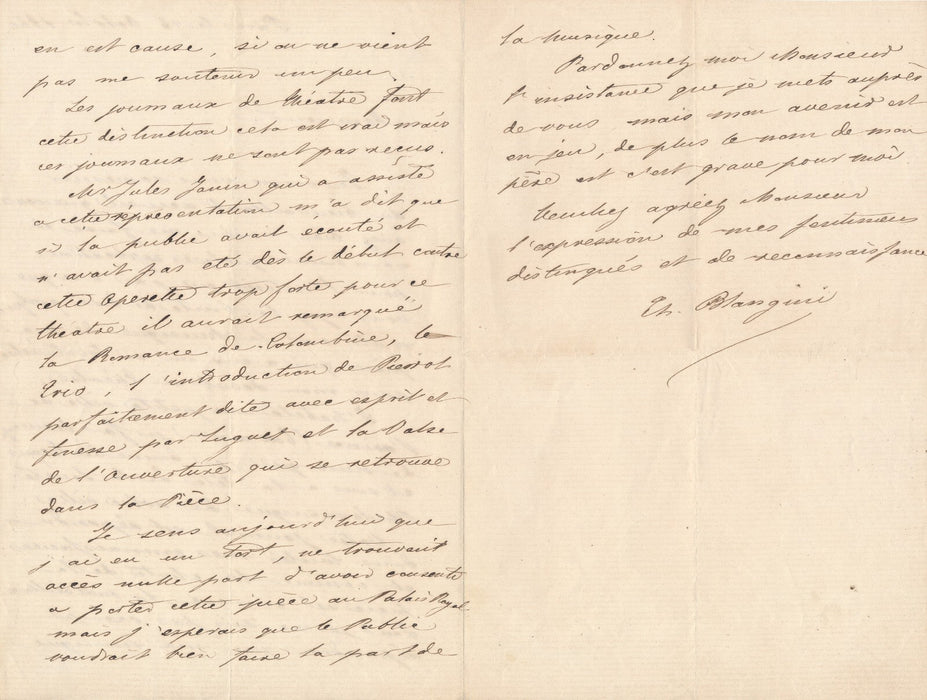 en est cause, si on ne vient
pas me soutenir un peu.
Les journaux de théatre font
cette distinction cela est vrai mais
ces journaux ne sont pas reçus.
Mr Jules Janin qui a assisté
a cette représentation m'a dit que
si la public avait écouté et
n'avait pas eté dès le début contre
cette Operette trop forte pour ce
theatre il aurait remarqué
la Romance de Colombine, le
Trio, l'introduction de Pierrot
parfaitement dite avec esprit et
finesse par Luguet et la Valse
de l'Ouverture qui se retrouve
dans la Pièce.
Je sens aujourd'hui que
j'ai eu un tort, ne trouvant
accès nulle part d'avoir consenti
a porter cette pièce au Palais Royal
mais j'esperais que le Public
voudrait bien faire la part de
la musique.
Pardonnez moi Monsieur
l'insistance que je mets auprès
de vous mais mon avenir est
en jeu, de plus le nom de mon
père est c'est grave pour moi
Veuillez agréez Monsieur
l'expression de mes sentimens
distingués et de reconnaissance
Th. Blangini